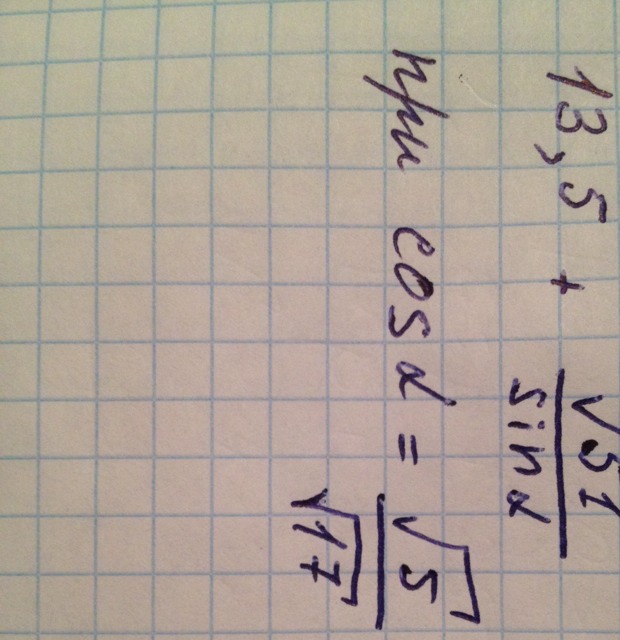 13,5 + √51/sin α
при cos α = √5/√17